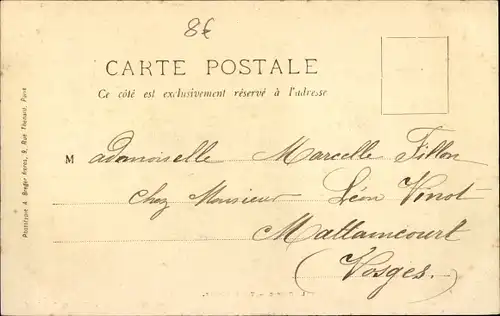 8€
CARTE POSTALE
Ce côté est exclusivement réservé à l'adresse
Mademoiselle Marcelle Fillon
chez Monsieur Léon Vinot
Mattaincourt
(Vosges.)
Phototypie A. Breger frères, 9, Rue Thénard, Paris